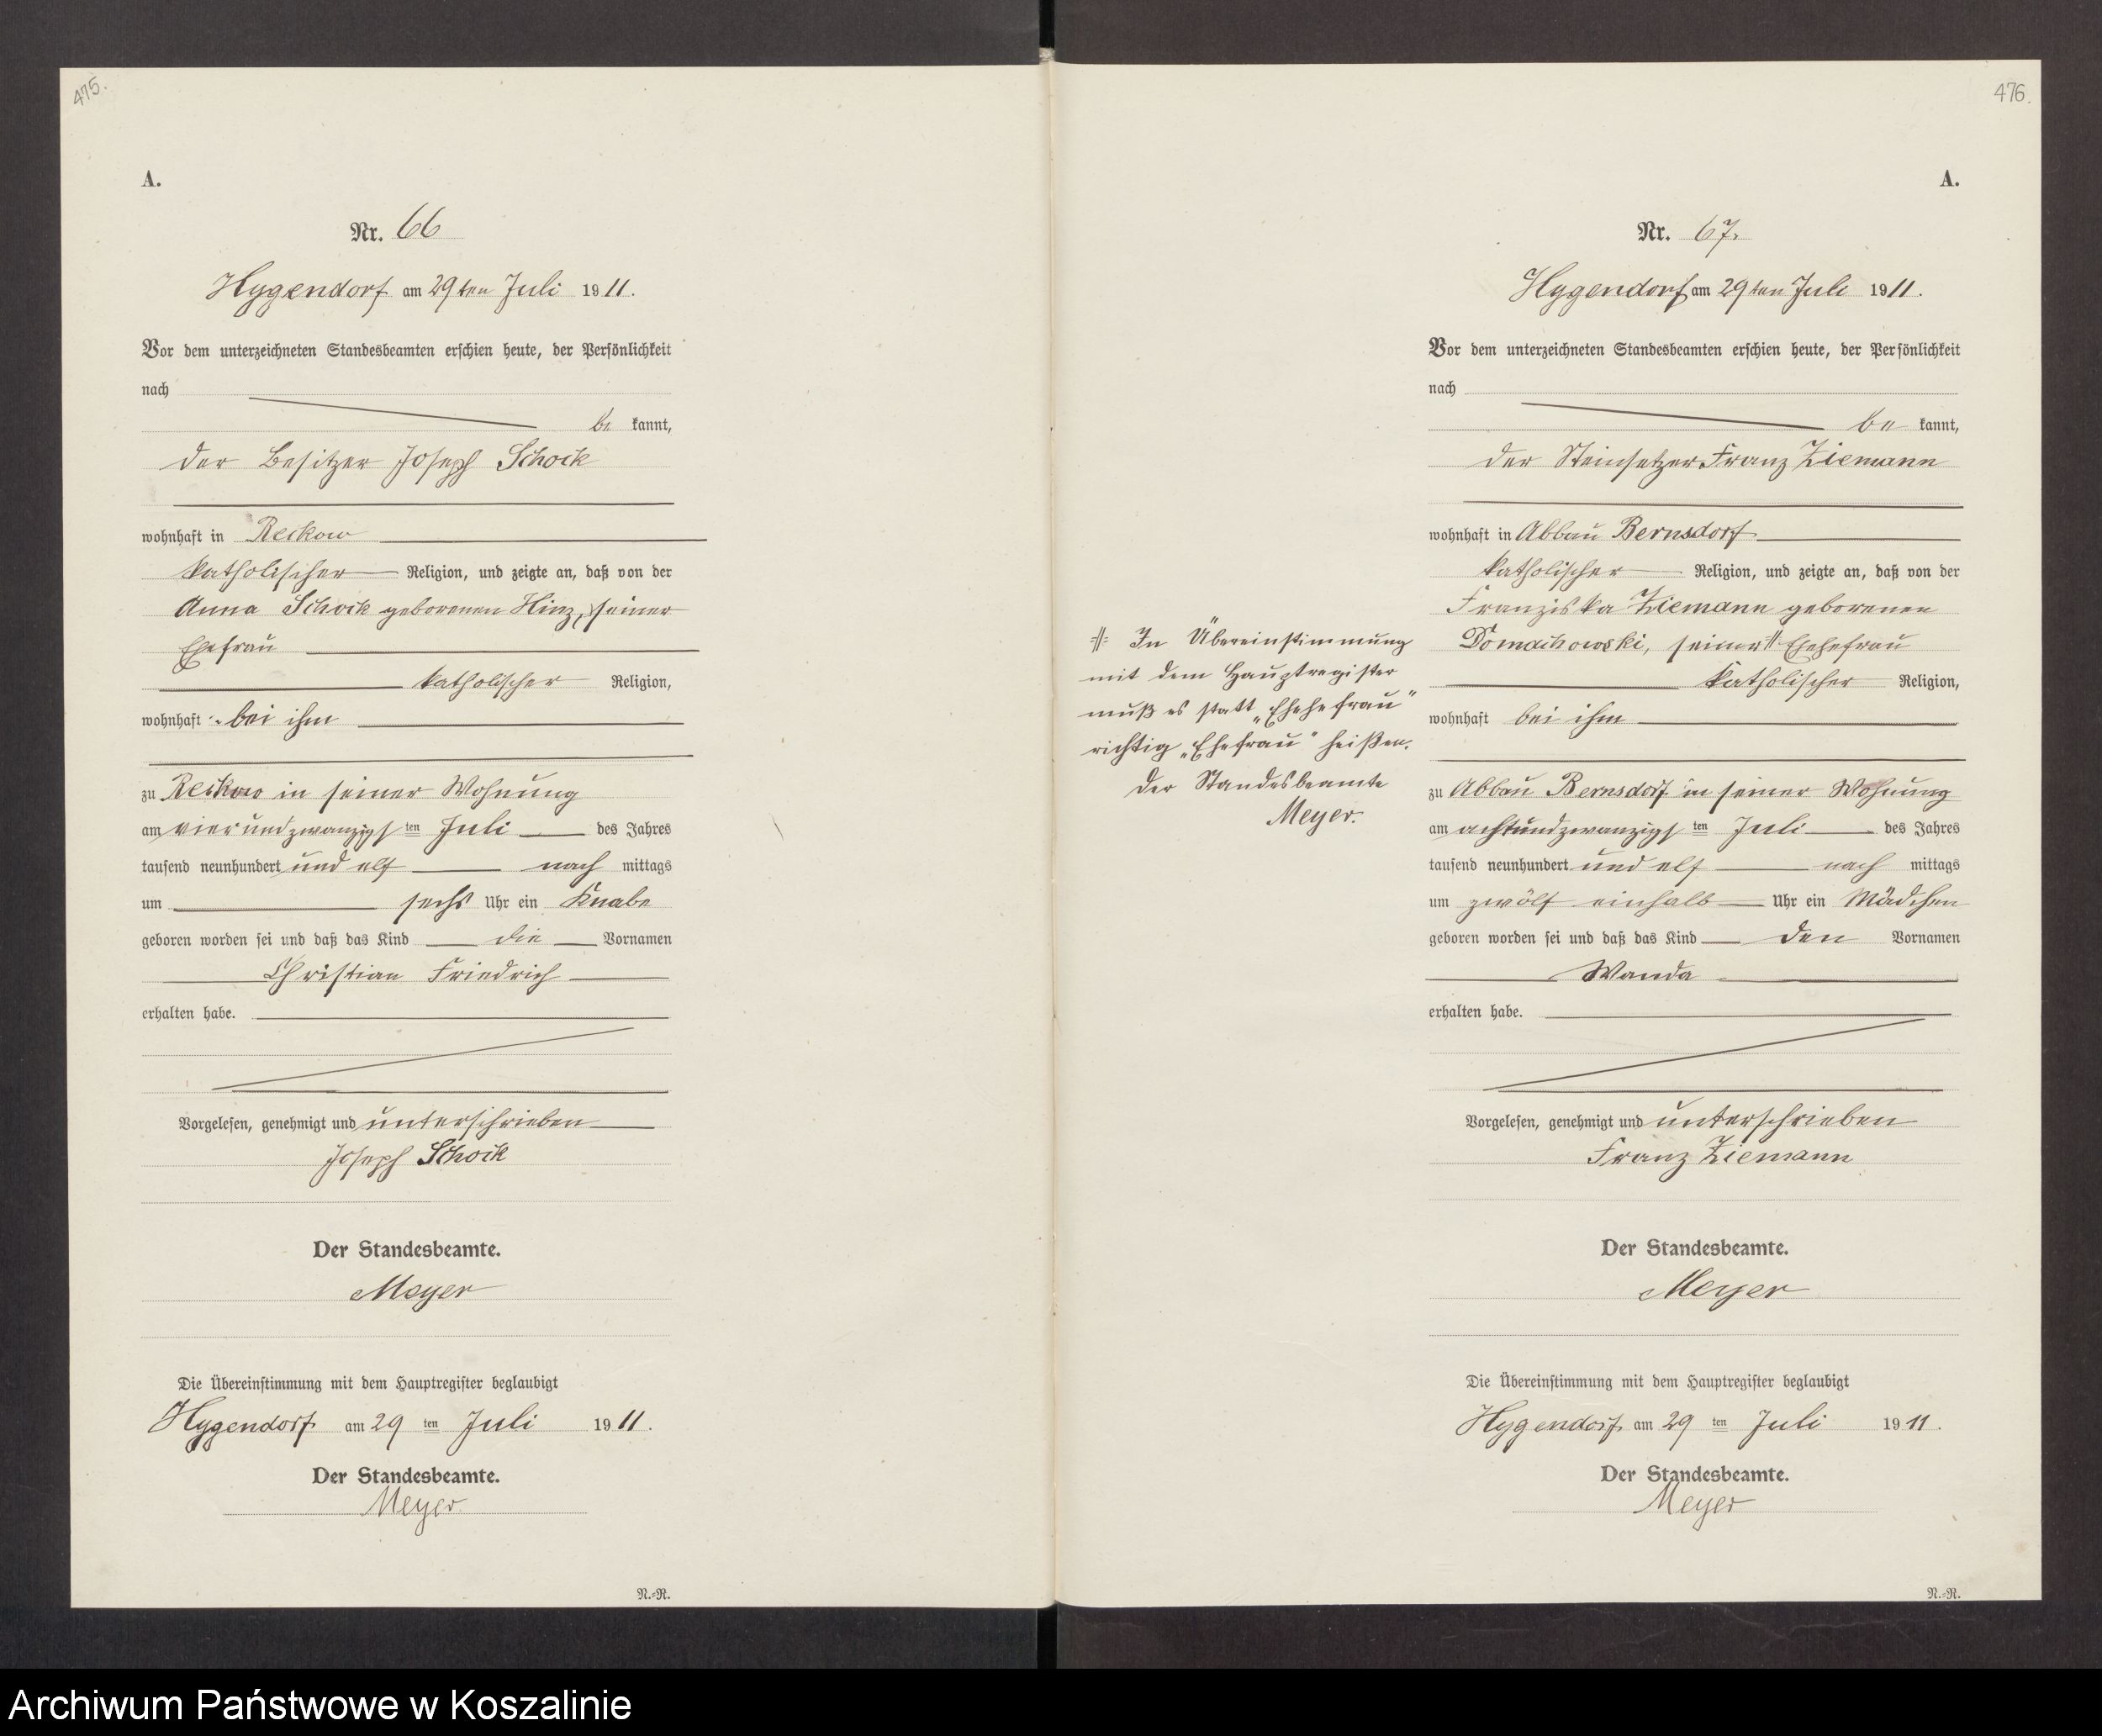 475.
A.
Nr. 66
Hygendorf am 29ten Juli 1911.
Vor dem unterzeichneten Standesbeamten erschien heute, der Persönlichkeit
nach
be kannt,
der Besitzer Joseph Schock
wohnhaft in Reckow
katholischer Religion, und zeigte an, daß von der
Anna Schock geborenen Hinz, seiner
Ehefrau
katholischer Religion,
wohnhaft bei ihm
zu Reckow in seiner Wohnung
am vierundzwanzigsten Juli des Jahres
tausend neunhundert und elf nach mittags
um sechs Uhr ein Knabe
geboren worden sei und daß das Kind die Vornamen
Christian Friedrich
erhalten habe.
Vorgelesen, genehmigt und unterschrieben
Joseph Schock
Der Standesbeamte.
Meyer
Die Übereinstimmung mit dem Hauptregister beglaubigt
Hygendorf am 29 ten Juli 1911.
Der Standesbeamte.
Meyer
N.-R.
476.
A.
Nr. 67.
Hygendorf am 29ten Juli 1911.
Vor dem unterzeichneten Standesbeamten erschien heute, der Persönlichkeit
nach
be kannt,
der Steinsetzer Franz Ziemann
wohnhaft in Abbau Bernsdorf
katholischer Religion, und zeigte an, daß von der
Franziska Ziemann geborenen
Domachowski, seiner Ehehefrau
katholischer Religion,
wohnhaft bei ihm
zu Abbau Bernsdorf in seiner Wohnung
am achtundzwanzigsten Juli des Jahres
tausend neunhundert und elf nach mittags
um zwölf einhalb Uhr ein Mädchen
geboren worden sei und daß das Kind den Vornamen
Wanda
erhalten habe.
Vorgelesen, genehmigt und unterschrieben
Franz Ziemann
Der Standesbeamte.
Meyer
Die Übereinstimmung mit dem Hauptregister beglaubigt
Hygendorf am 29 ten Juli 1911.
Der Standesbeamte.
Meyer
N.-R.
In Übereinstimmung
mit dem Hauptregister
muß es statt „Ehehefrau"
richtig „Ehefrau" heißen.
Der Standesbeamte
Meyer.
Archiwum Państwowe w Koszalinie